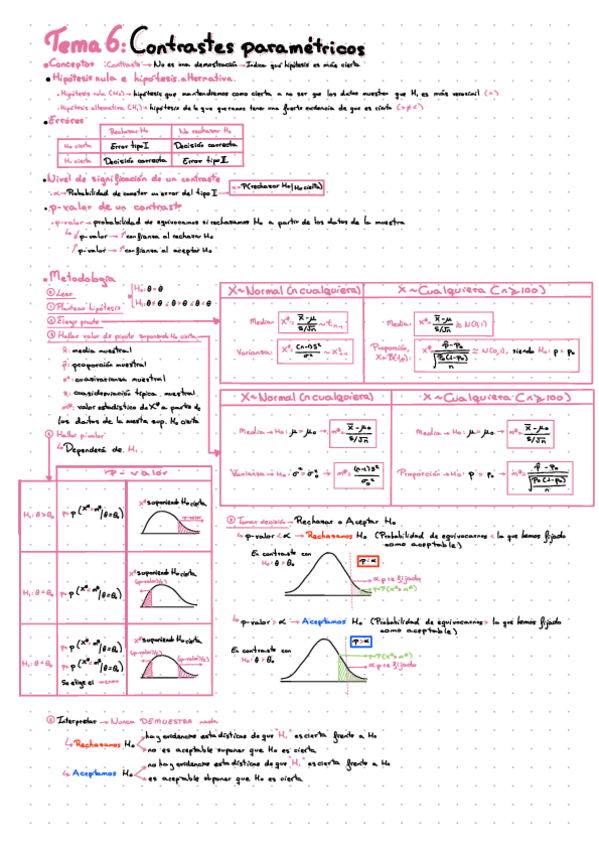 Tema 6: Contrastes paramétricos
• Conceptos: Contraste → No es una demostración → Indica qué hipótesis es más cierta
• Hipótesis nula e hipótesis alternativa
· Hipótesis nula (H₀) → hipótesis que mantendremos como cierta a no ser que los datos muestren que H₁ es más verosímil (=)
· Hipótesis alternativa (H₁) → hipótesis de la que queremos tener una fuerte evidencia de que es cierta (>≠<)
• Errores
Rechazar H₀ No rechazar H₀
H₀ cierta Error tipo I Decisión correcta
H₁ cierta Decisión correcta Error tipo II
• Nivel de significación de un contraste
· α → Probabilidad de cometer un error del tipo I → α = P(rechazar H₀ | H₀ cierta)
• p-valor de un contraste
· p-valor → probabilidad de equivocarnos si rechazamos H₀ a partir de los datos de la muestra
↳ ↓ p-valor → ↑ confianza al rechazar H₀
↑ p-valor → ↑ confianza al aceptar H₀
• Metodología
⓪ Leer
① Plantear hipótesis
② Elegir pivote
③ Hallar valor de pivote suponiendo H₀ cierta
x̄: media muestral
p̂: proporción muestral
s²: cuasivarianza muestral
s: cuasidesviación típica muestral
m*: valor estadístico de X* a partir de
los datos de la muestra sup. H₀ cierta
④ Hallar p-valor
↳ Dependerá de H₁
X ~ Normal (n cualquiera) X ~ Cualquiera (n ≥ 100)
Media: X* = (x̄ - μ)/(s/√n) ~ tₙ₋₁ Media: X* = (x̄ - μ)/(s/√n) ≈ N(0,1)
Varianza: X* = (n-1)s²/σ² ~ χ²ₙ₋₁ Proporción, X ~ B(1,p): X* = (p̂ - p₀)/√(p₀(1-p₀)/n) ≈ N(0,1), siendo H₀: p = p₀
X ~ Normal (n cualquiera) X ~ Cualquiera (n ≥ 100)
Media → H₀: μ = μ₀ → m* = (x̄ - μ₀)/(s/√n) Media → H₀: μ = μ₀ → m* = (x̄ - μ₀)/(s/√n)
Varianza → H₀: σ² = σ₀² → m* = (n-1)s²/σ₀² Proporción → H₀: p = p₀ → m* = (p̂ - p₀)/√(p₀(1-p₀)/n)
p-valor
X* suponiendo H₀ cierta
p-valor
X* suponiendo H₀ cierta
X* suponiendo H₀ cierta
Se elige el menor
⑤ Tomar decisión → Rechazar o Aceptar H₀
↳ p-valor < α → Rechazamos H₀ (Probabilidad de equivocarnos < la que hemos fijado
como aceptable)
En contraste con
H₁: θ > θ₀
p < α
α prefijado
↳ p-valor > α → Aceptamos H₀ (Probabilidad de equivocarnos > la que hemos fijado
como aceptable)
En contraste con
H₁: θ > θ₀
p > α
α prefijado
⑥ Interpretar → Nunca DEMUESTRA nada
↳ Rechazamos H₀
hay evidencias estadísticas de que "H₁" es cierta frente a H₀
no es aceptable suponer que H₀ es cierta
↳ Aceptamos H₀
no hay evidencias estadísticas de que "H₁" es cierta frente a H₀
es aceptable suponer que H₀ es cierta